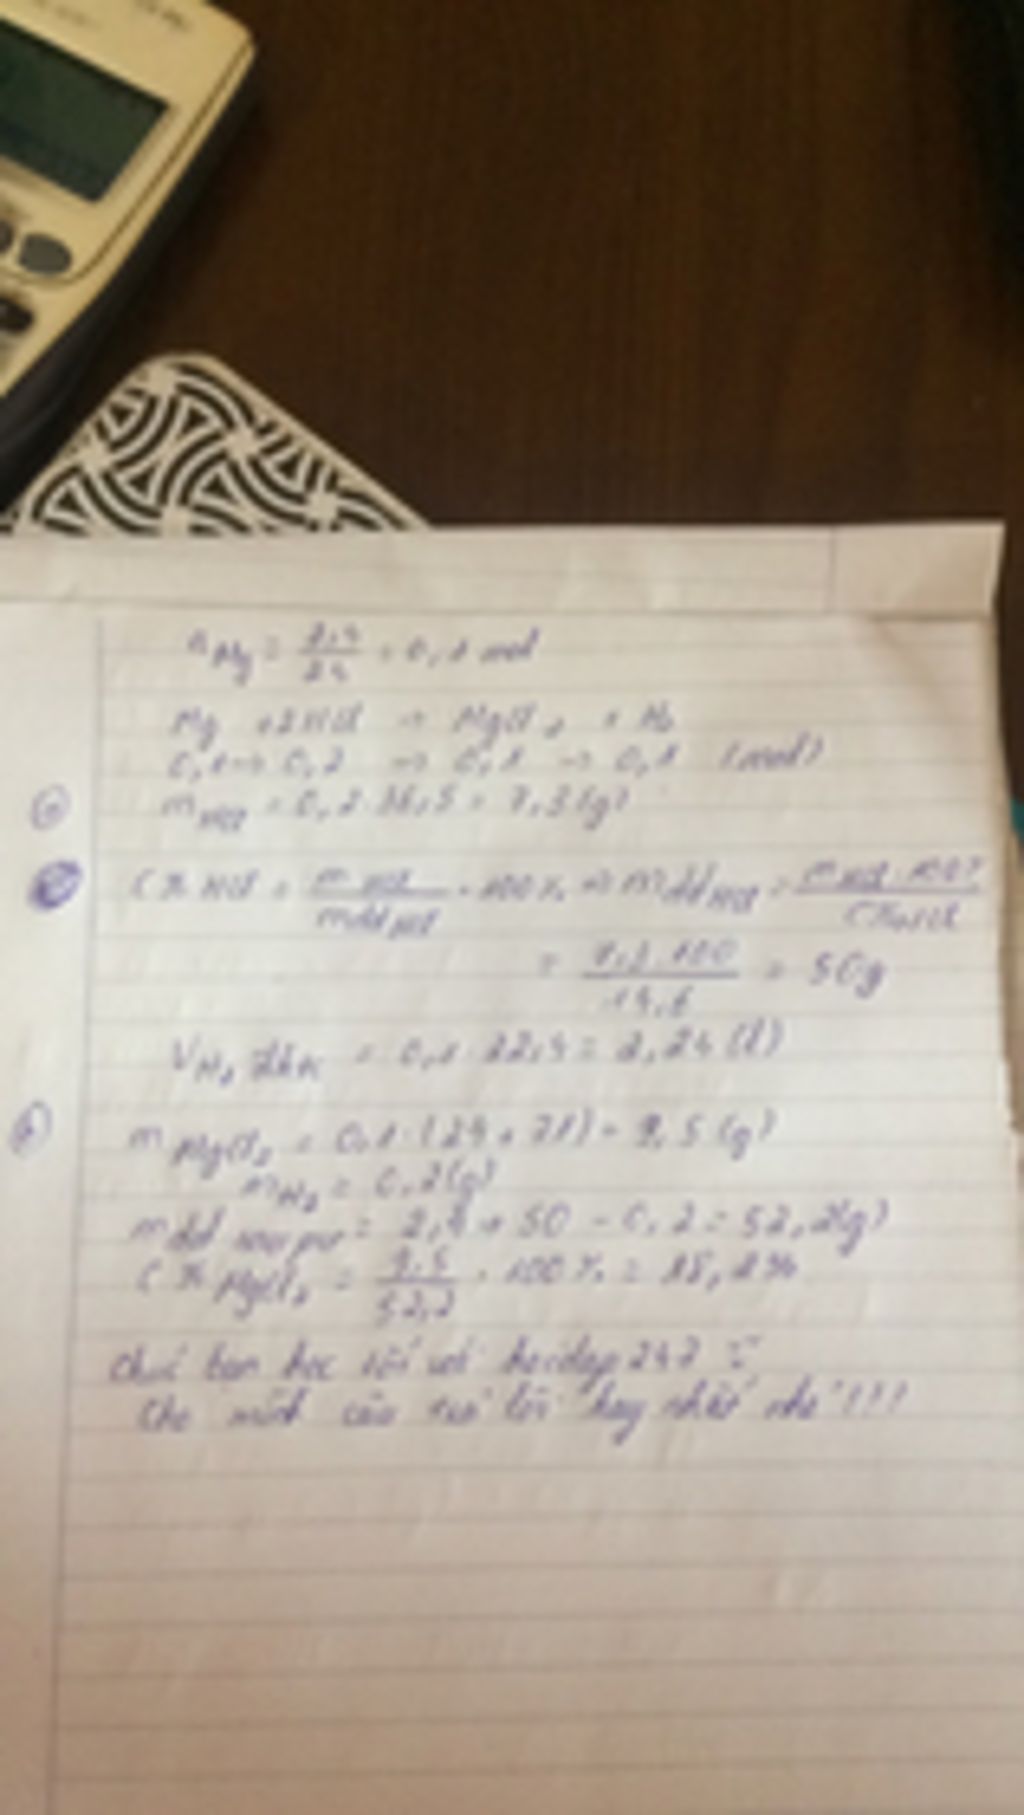 n Mg = 2,4/24 = 0,1 mol
Mg + 2HCl → MgCl₂ + H₂
0,1 → 0,2 → 0,1 → 0,1 (mol)
a m HCl = 0,2.36,5 = 7,3(g)
C% HCl = m HCl / mdd HCl . 100% ⇒ mdd HCl = m HCl . 100% / C% HCl
= 7,3.100 / 14,6 = 50g
V H₂ đktc = 0,1.22,4 = 2,24 (l)
m MgCl₂ = 0,1.(24+71) = 9,5(g)
m H₂ = 0,2(g)
mdd sau pư = 2,4 + 50 - 0,2 = 52,2(g)
C% MgCl₂ = 9,5/52,2 . 100% = 18,2%
Chúc bạn học tốt với hoidap247
Cho mình câu trả lời hay nhất nhé!!!